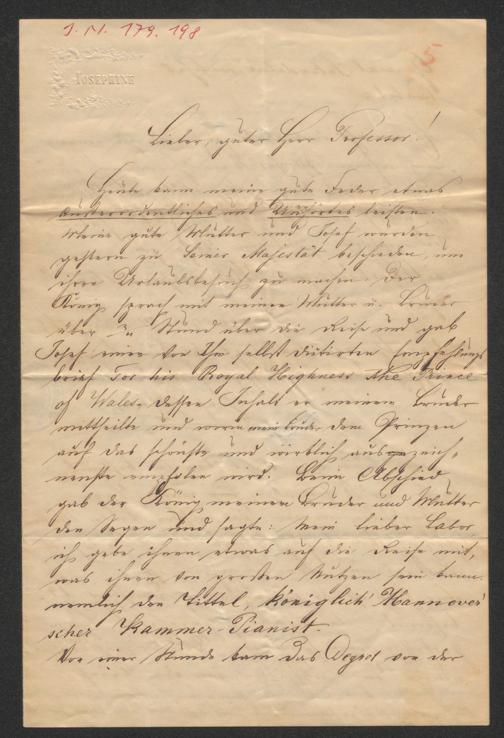 I. N. 179.198
5
JOSEPHINE
Lieber, guter Herr Professor!
Heute kann meine gute Feder etwas
Außerordentliches und leisten.
Meine gute Mutter und Josef wurden
gestern zu Seiner Majestät beschieden, um
ihren Urlaubsbesuch zu machen. Der
König sprach mit meiner Mutter u. Bruder
über ¾ Stund über die Reise und gab
Josef einen von Ihm selbst dictirten Empfehlungs
brief For his Royal Highness the Prince
of Wales, dessen Inhalt er meinem Bruder
mittheilte und worin mein Bruder dem Prinzen
auf das schönste und wirklich ausgezeich-
nenste empfolen wird. Beim Abschied
gab der König meinem Bruder und Mutter
den Segen und sagte: Mein lieber Labor,
ich gebe ihnen etwas auf die Reise mit,
was ihnen von großen Nutzen sein kann.
nemlich den Tittel, Königlich Hannover'
scher Kammer-Pianist.
Vor einer Stunde kam das Degret von der